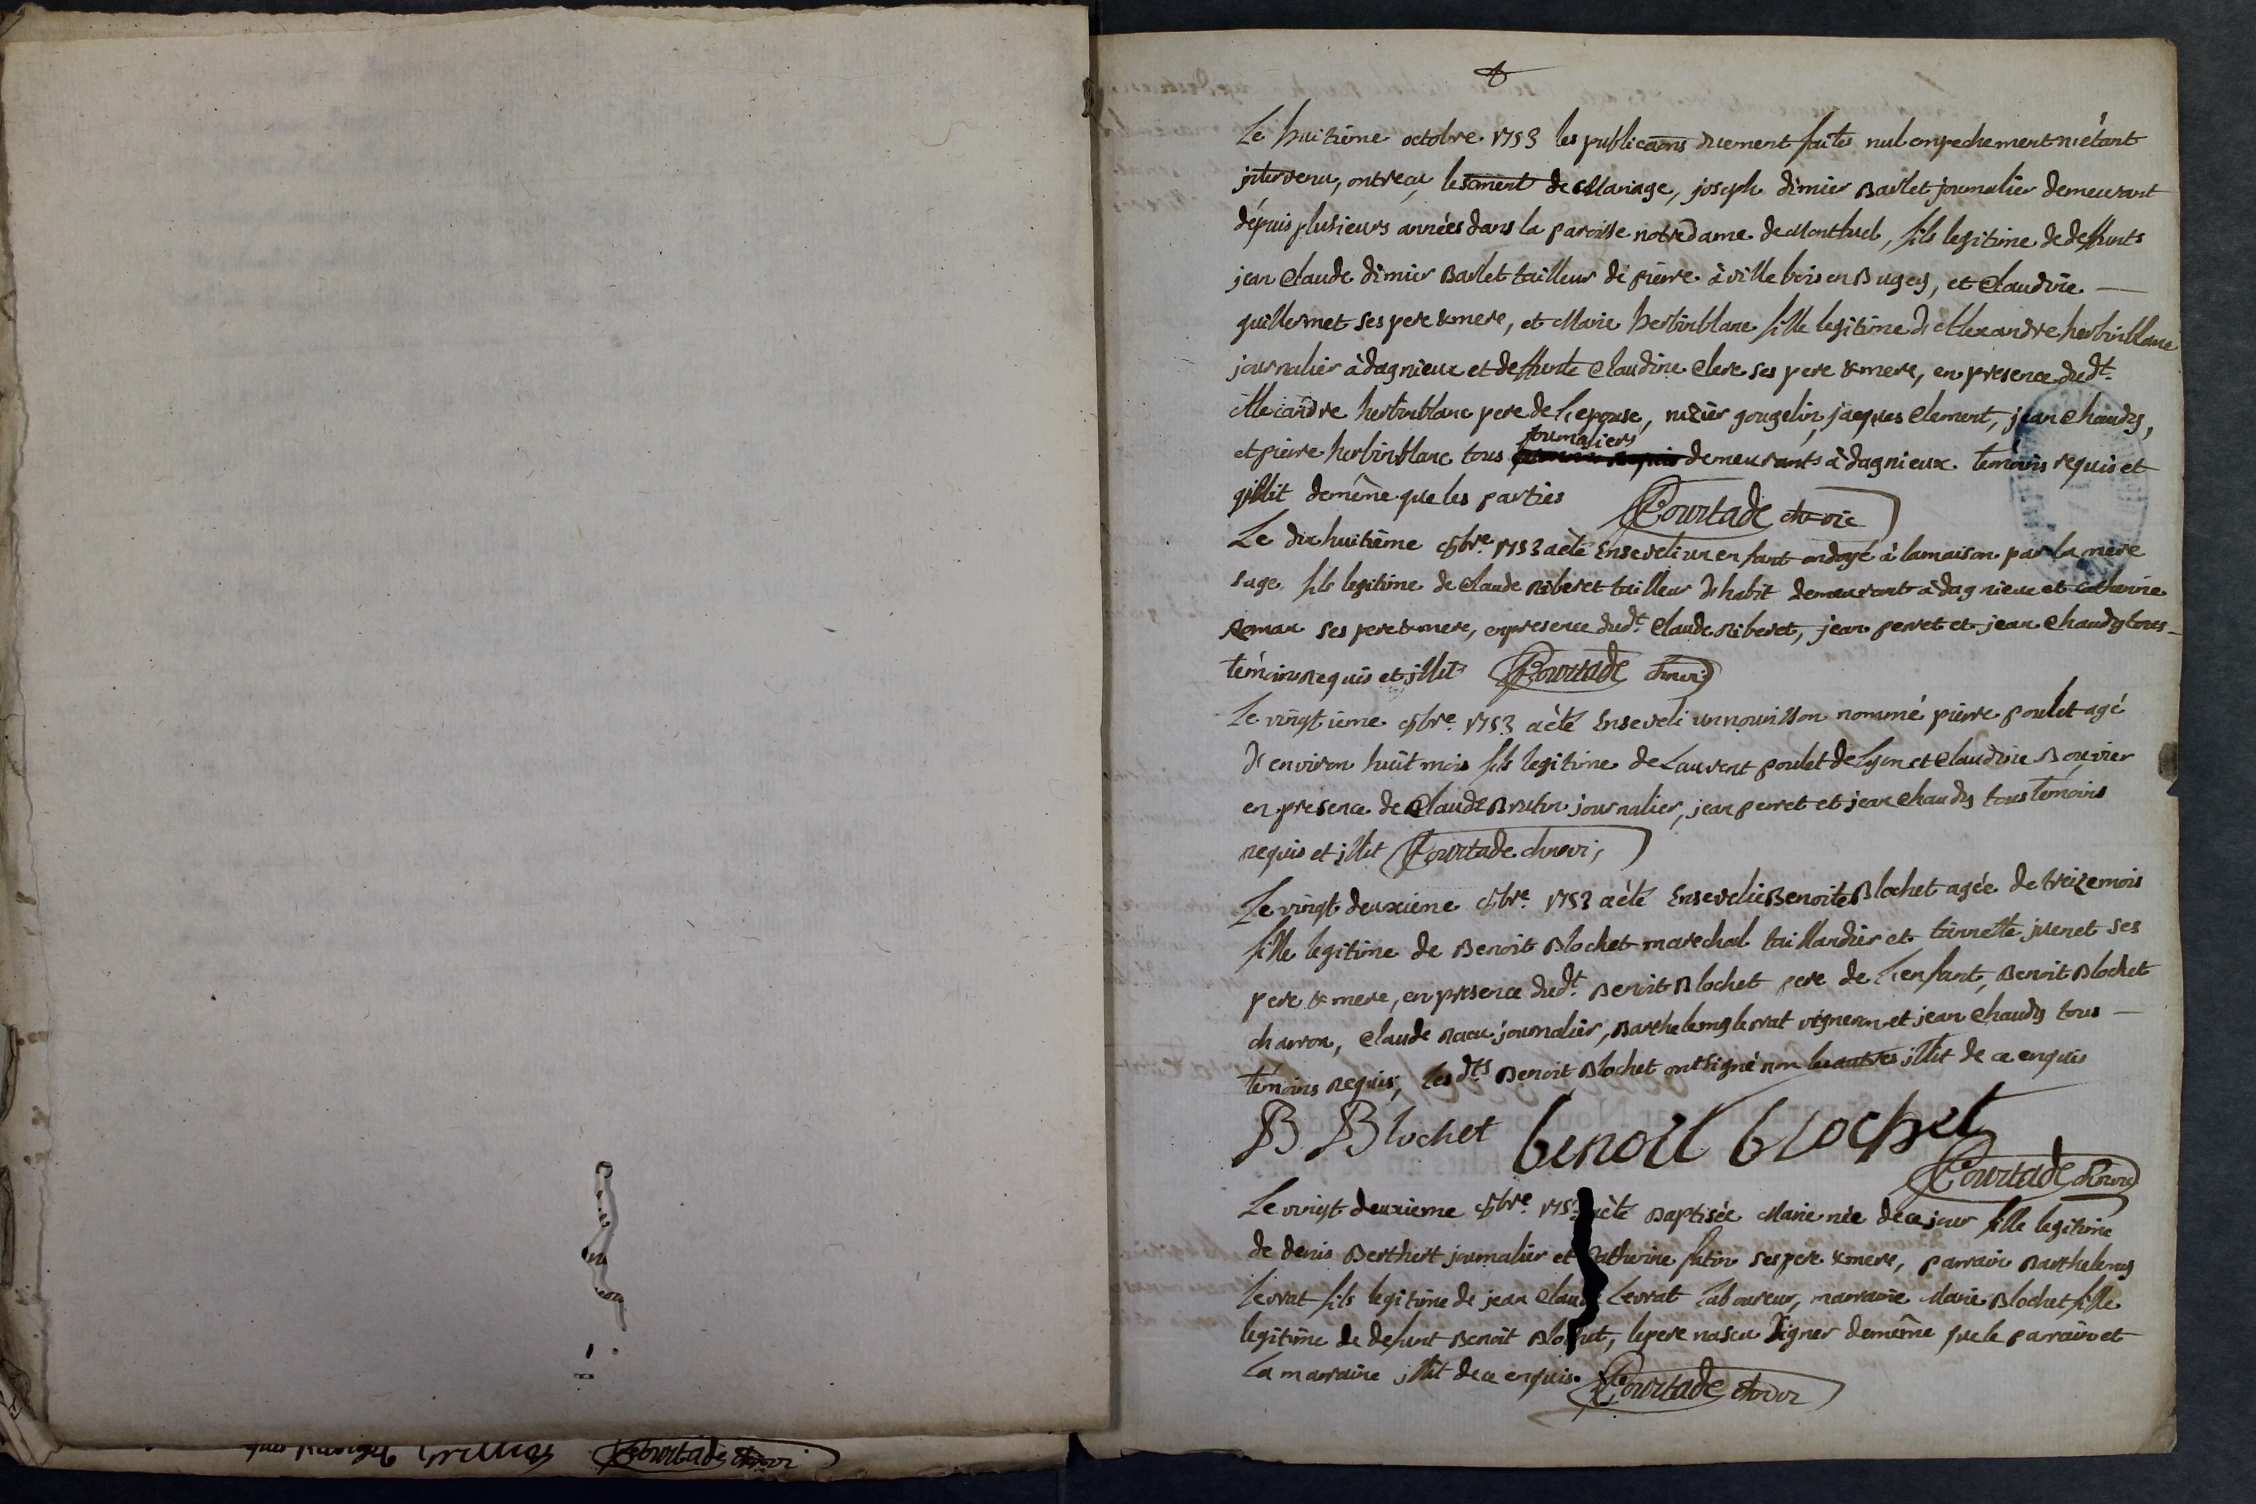 Le huitième octobre 1753 les publicaons duement faites nul enpechement n'etant
intervenu, ont reçu le sament de Mariage, joseph dimier Barlet journalier demeurant
dépuis plusieurs années dans la paroisse notre dame de Montluel, fils legitime de deffunts
jean Claude dimier Barlet tailleur de pierre à ville bois en Bugey, et Claudine
guillermet ses pere & mere, et Marie herbinblanc fille legitime d'Alexandre herbinblanc
journalier à dagnieux et deffunte Claudine Clerc ses pere & mere, en presence dudt.
Alexandre herbinblanc pere de l'epouse, nizier gougelin, jacques Clement, jean Chaudy,
et pierre herbinblanc tous journaliers demeurants à dagnieux temoins requis et
illit demême que les parties Courtade
Le dix huitième 8bre. 1753 a èté Enseveli un enfant ondoyé à la maison par la mère
sage fils legitime de Claude Riberet tailleur d'habit demeurant à dagnieux et Catherine
Roman ses pere & mere, en presence dudt. Claude Riberet, jean perret et jean Chaudy tous
témoins requis et illit Courtade
Le vingtième 8bre. 1753 a èté Enseveli un nourisson nommé pierre poulet agé
d'environ huit mois fils legitime de Laurent poulet de Lyon et Claudine Bouvier
en presence de Claude journalier, jean perret et jean Chaudy tous témoins
requis et illit Courtade
Le vingt deuxième 8bre. 1753 a èté Ensevelie Benoite Blochet agée de treize mois
fille legitime de Benoit Blochet marechal taillandier et tiennette juenet ses
pere & mere, en presence dudt. Benoit Blochet pere de l'enfant, Benoit Blochet
charron, Claude journalier, Barthelemy levrat vigneron et jean Chaudy tous
témoins requis, les dts Benoit Blochet ont signé non les autres illit de ce enquis
B Blochet benoit blochet
Courtade
Le vingt deuxieme 8bre. 175 a èté Baptisée Marie née de ce jour fille legitime
de denis Berthert journalier et Catherine futin ses pere & mere, parrain Barthelemy
Levrat fils legitime de jean Claude Levrat Laboureur, marraine Marie Blochet fille
legitime de defunt Benoit Blochet, le pere na scu signer demême que le parrain et
La marraine illit de ce enquis. Courtade
Courtade